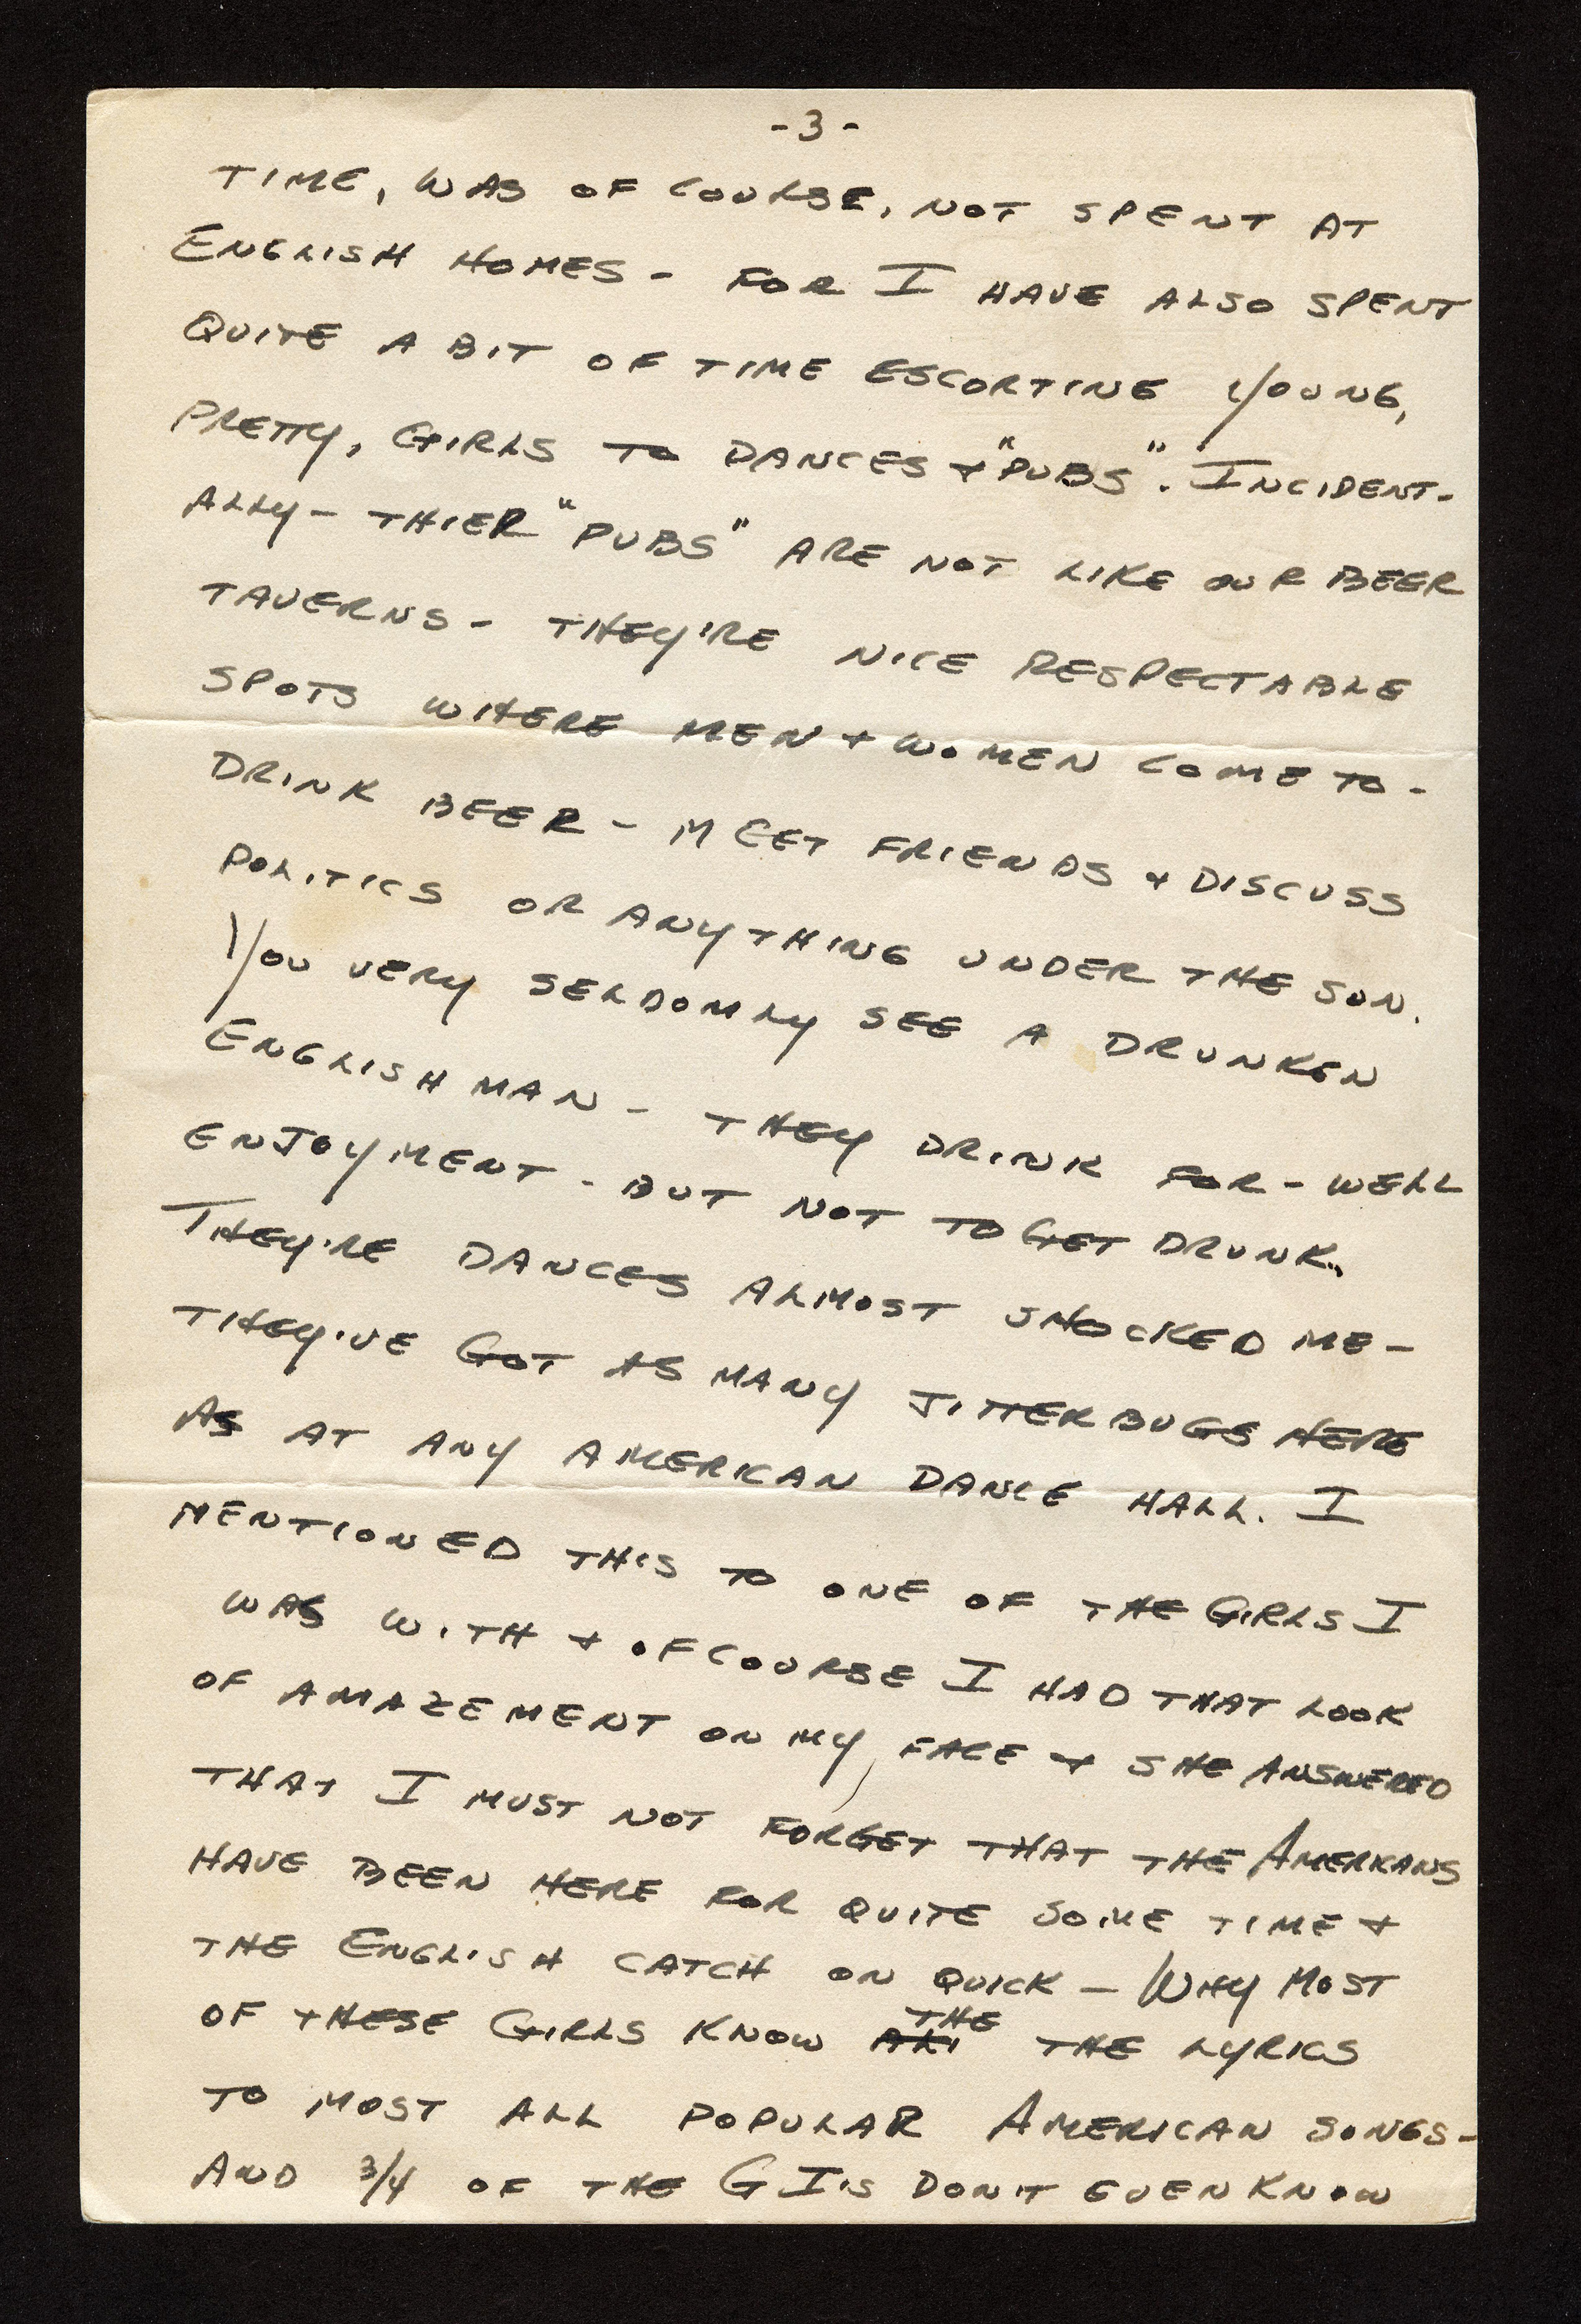 -3-
TIME, WAS OF COURSE, NOT SPENT AT
ENGLISH HOMES - FOR I HAVE ALSO SPENT
QUITE A BIT OF TIME ESCORTING YOUNG,
PRETTY, GIRLS TO DANCES + "PUBS". INCIDENT-
ALLY - THIER "PUBS" ARE NOT LIKE OUR BEER
TAVERNS - THEY'RE NICE RESPECTABLE
SPOTS WHERE MEN + WOMEN COME TO -
DRINK BEER - MEET FRIENDS + DISCUSS
POLITICS OR ANYTHING UNDER THE SUN.
YOU VERY SELDOMLY SEE A DRUNKEN
ENGLISHMAN - THEY DRINK FOR - WELL
ENJOYMENT - BUT NOT TO GET DRUNK.
THEY'RE DANCES ALMOST SHOCKED ME -
THEY'VE GOT AS MANY JITTERBUGS HERE
AS AT ANY AMERICAN DANCE HALL. I
MENTIONED THIS TO ONE OF THE GIRLS I
WAS WITH + OF COURSE I HAD THAT LOOK
OF AMAZEMENT ON MY FACE + SHE ANSWERED
THAT I MUST NOT FORGET THAT THE AMERICANS
HAVE BEEN HERE FOR QUITE SOME TIME +
THE ENGLISH CATCH ON QUICK - WHY MOST
OF THESE GIRLS KNOW THE THE LYRICS
TO MOST ALL POPULAR AMERICAN SONGS -
AND 3/4 OF THE GI'S DON'T EVEN KNOW